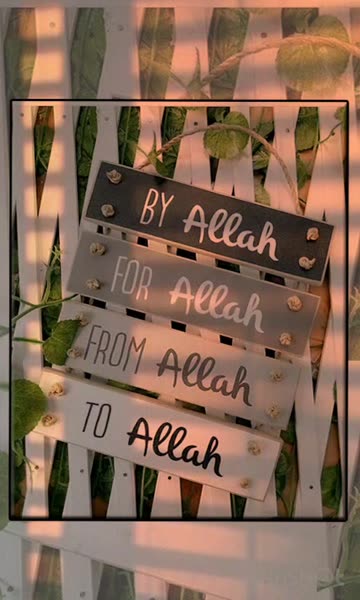 BY Allah
FOR Allah
FROM Allah
TO Allah